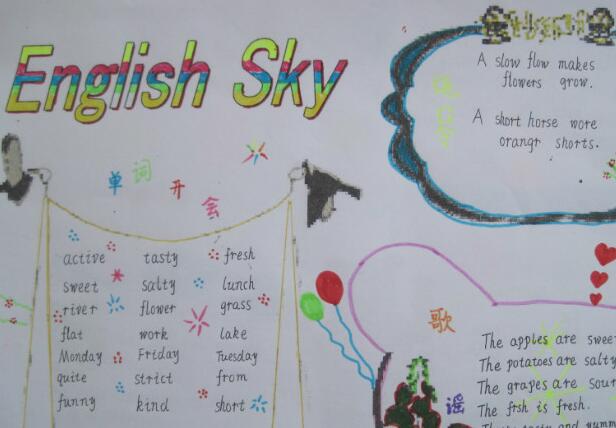 English Sky
单词开会
active tasty fresh
sweet salty lunch
river flower grass
flat work lake
Monday Friday Tuesday
quite strict from
funny kind short
A slow flow makes
flowers grow.
A short horse wore
orangr shorts.
歌谣
The apples are swee
The potatoes are salty
The grapes are sour
The fish is fresh.